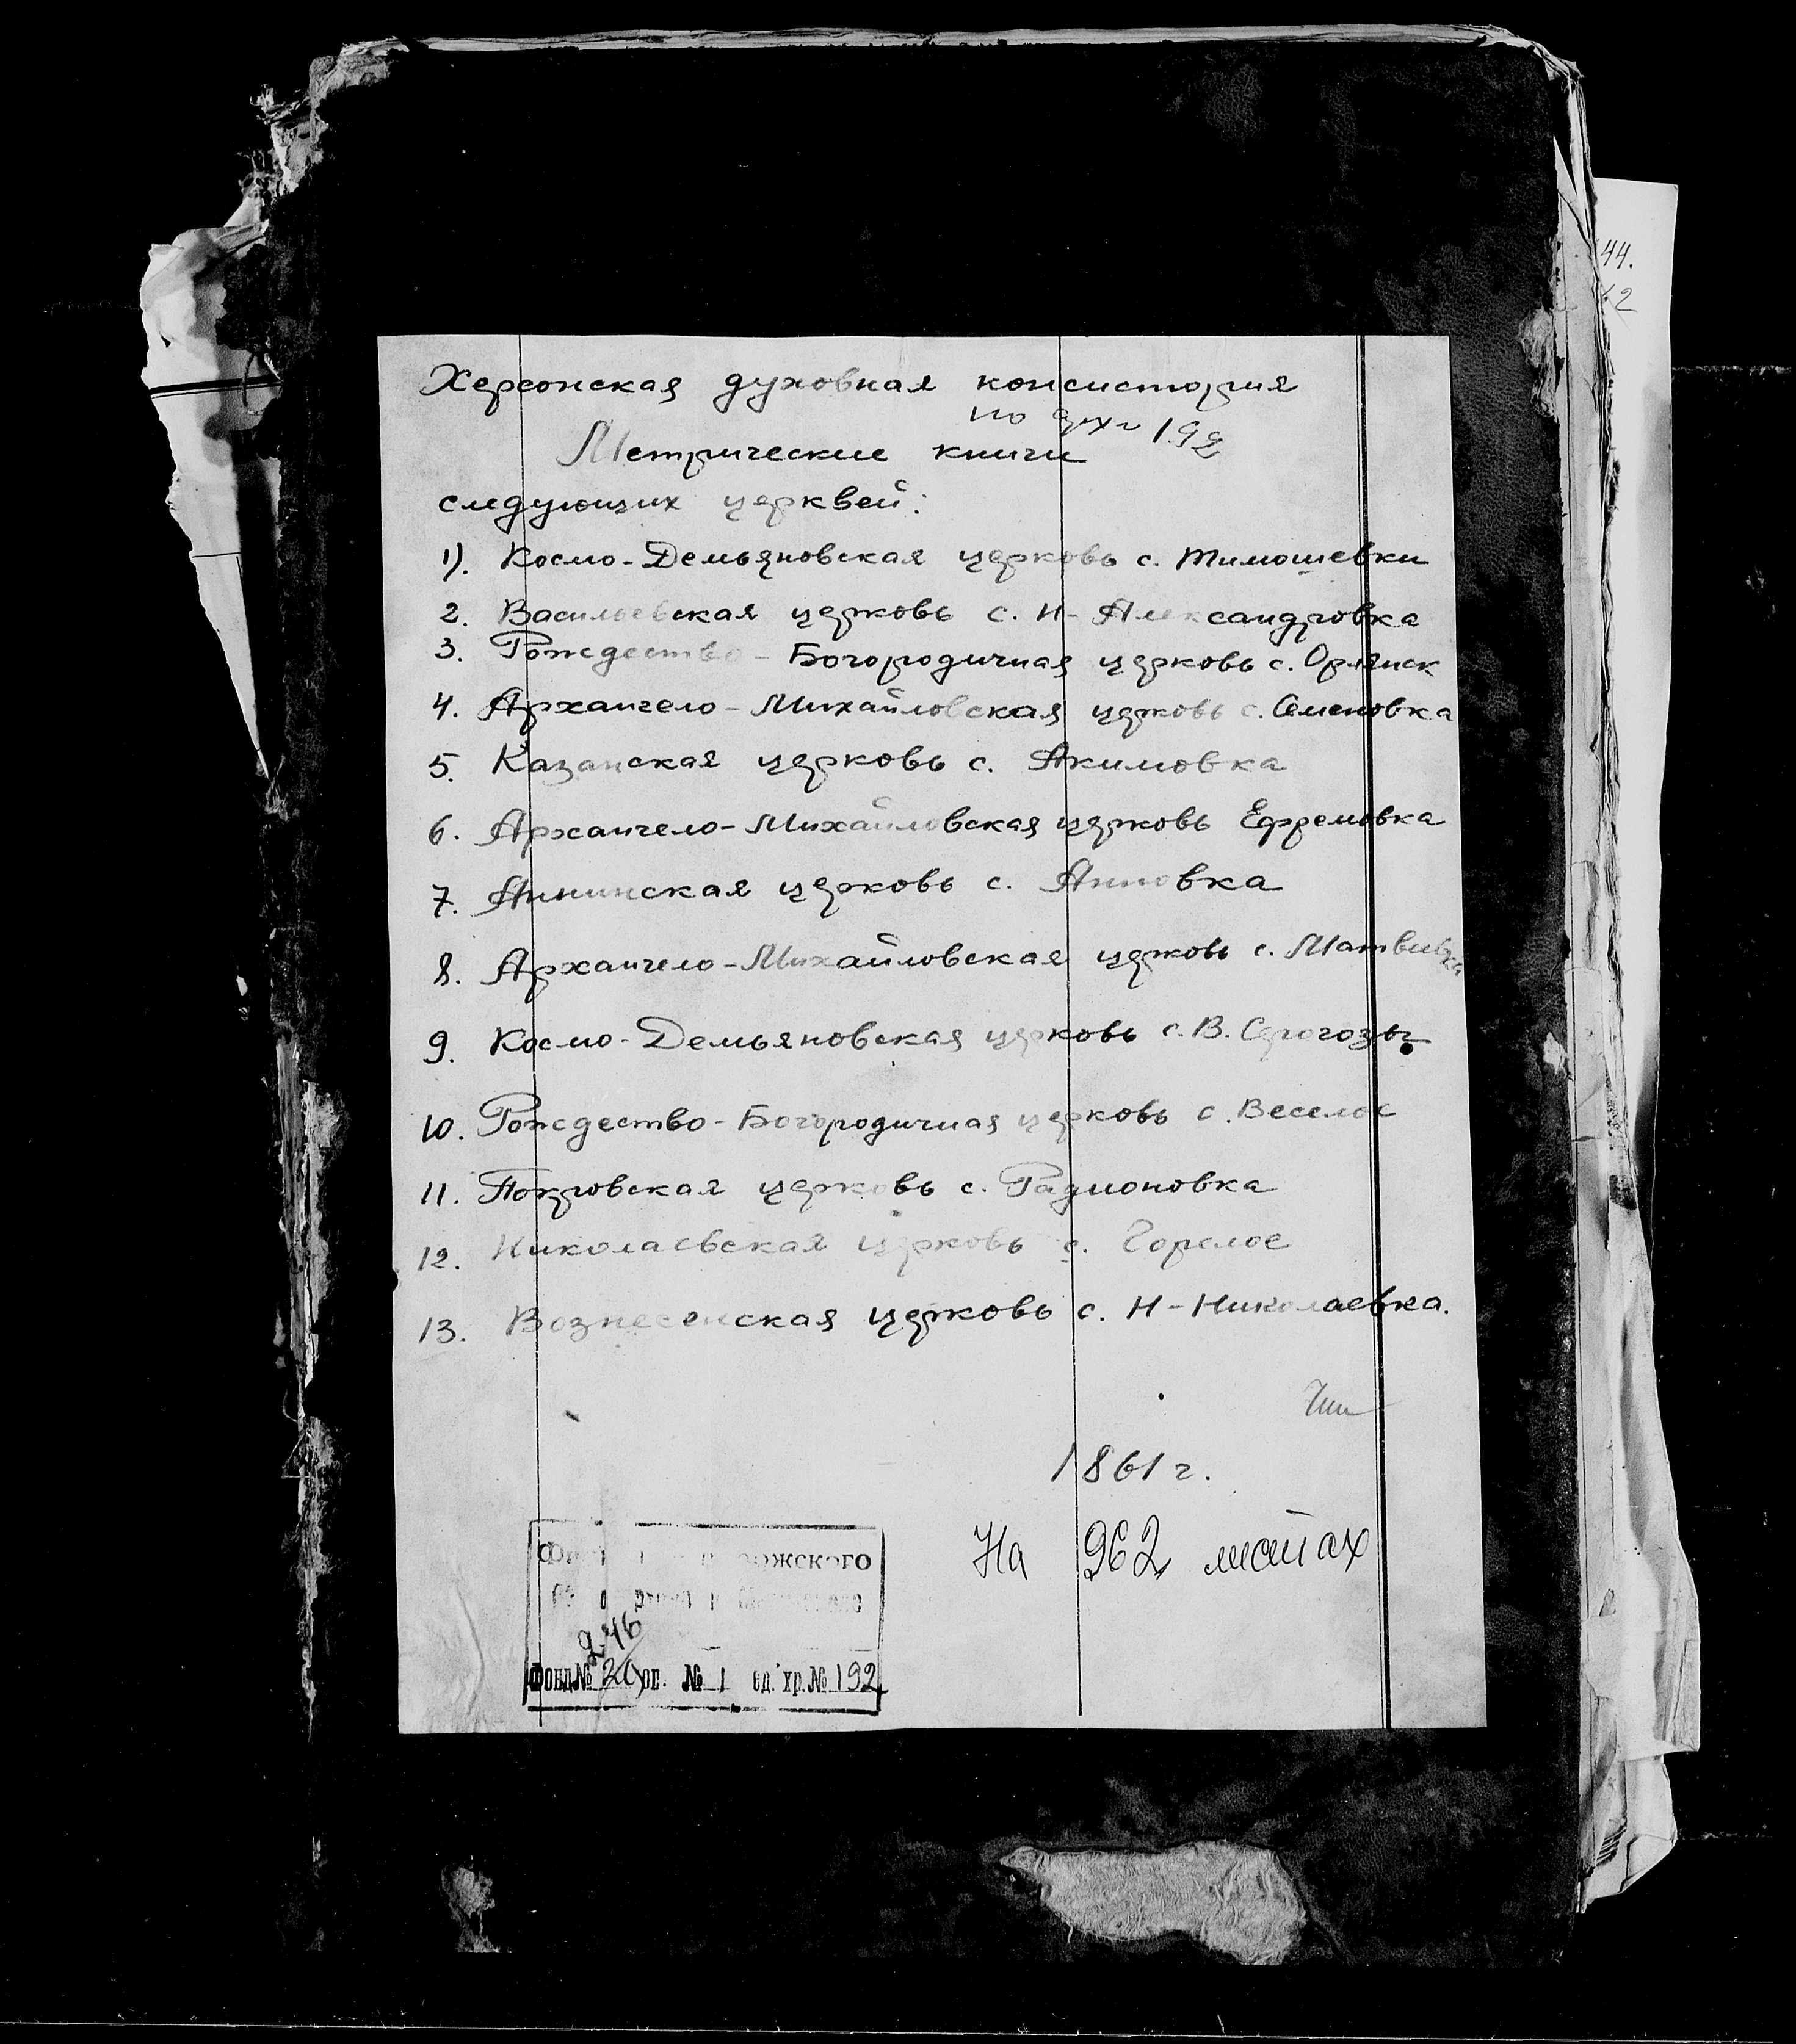 44.
Херсонская духовная консистория
по арх 192
Метрические книги
следующих церквей:
1). Космо-Демьяновская церковь с. Тимошевки
2. Васильевская церковь с. Н-Александровка
3. Рождество-Богородичная церковь с. Орлянск
4. Архангело-Михайловская церковь с. Семеновка
5. Казанская церковь с. Акимовка
6. Архангело-Михайловская церковь Ефремовка
7. Аннинская церковь с. Анновка
8. Архангело-Михайловская церковь с. Матвиевка
9. Космо-Демьяновская церковь с. В. Серогозы
10. Рождество-Богородичная церковь с. Веселое
11. Покровская церковь с. Радионовка
12. Николаевская церковь с. Горелое
13. Вознесенская церковь с. Н-Николаевка.
1861 г.
На 962 листах
246
Фонд № 20 оп. № 1 ед. хр. № 192